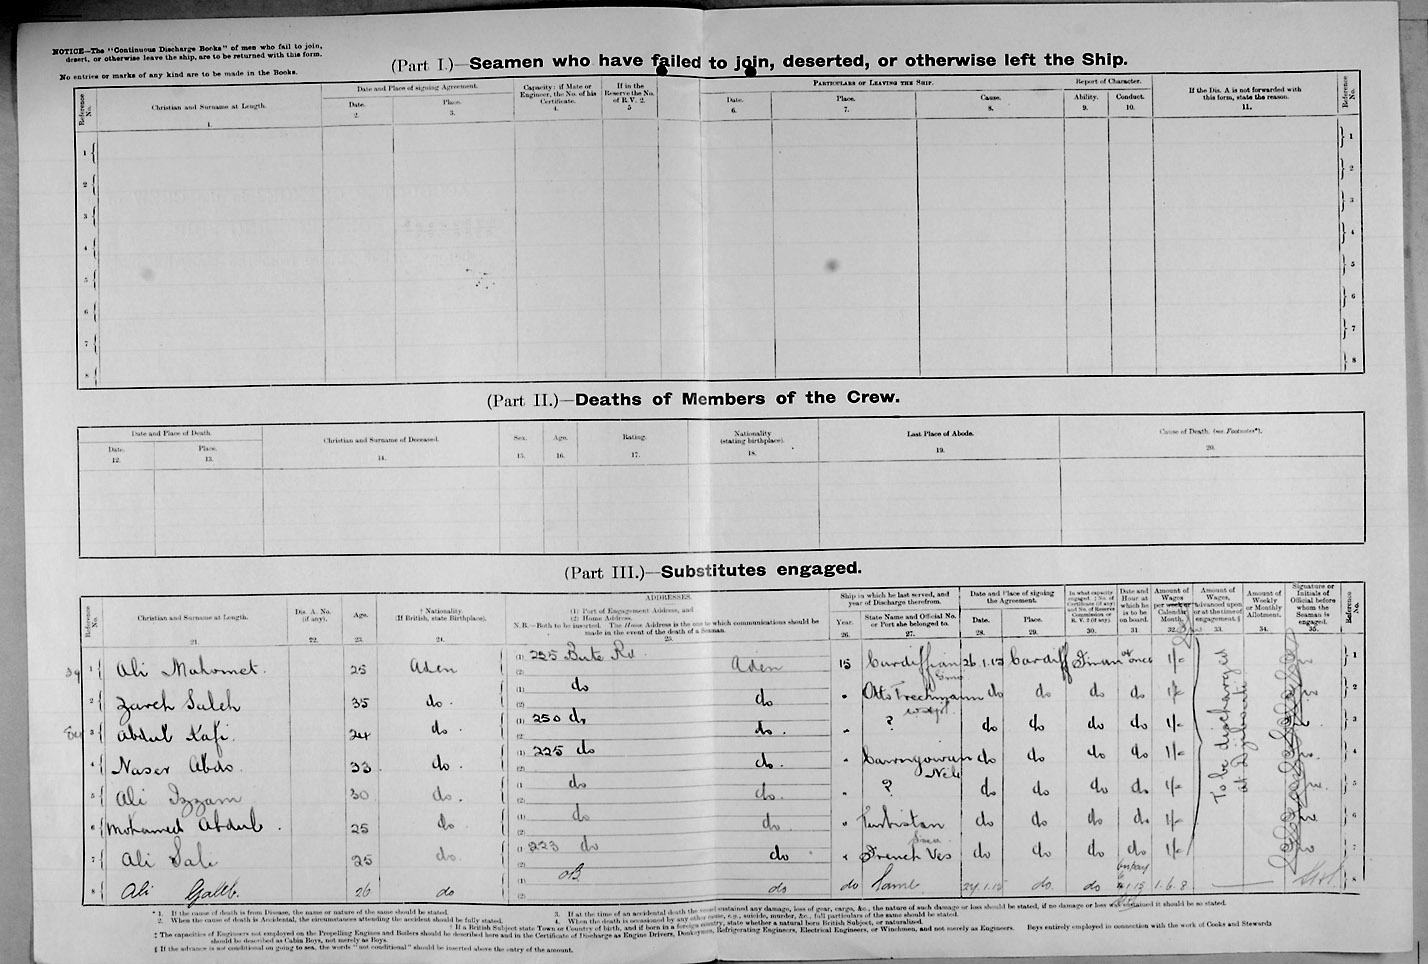 NOTICE—The "Continuous Discharge Books" of men who fail to join,
desert, or otherwise leave the ship, are to be returned with this form.
No entries or marks of any kind are to be made in the Books.
(Part I.)—Seamen who have failed to join, deserted, or otherwise left the Ship.
Reference No.
Christian and Surname at Length.
1.
Date and Place of signing Agreement.
Date.
2.
Place.
3.
Capacity: if Mate or
Engineer, the No. of his
Certificate.
4.
If in the
Reserve the No.
of R.V. 2.
5
Particulars of Leaving the Ship.
Date.
6.
Place.
7.
Cause.
8.
Report of Character.
Ability.
9.
Conduct.
10.
If the Dis. A is not forwarded with
this form, state the reason.
11.
Reference No.
1 1
2 2
3 3
4 4
5 5
6 6
7 7
8 8
(Part II.)—Deaths of Members of the Crew.
Date and Place of Death.
Date.
12.
Place.
13.
Christian and Surname of Deceased.
14.
Sex.
15.
Age.
16.
Rating.
17.
Nationality
(stating birthplace).
18.
Last Place of Abode.
19.
Cause of Death. (see Footnotes*).
20.
(Part III.)—Substitutes engaged.
Reference No.
Christian and Surname at Length.
21.
Dis. A. No.
(if any).
22.
Age.
23.
† Nationality.
(If British, state Birthplace).
24.
ADDRESSES.
(1) Port of Engagement Address, and
(2) Home Address.
N.B.—Both to be inserted. The Home Address is the one to which communications should be
made in the event of the death of a Seaman.
25.
Ship in which he last served, and
year of Discharge therefrom.
Year.
26.
State Name and Official No.
or Port she belonged to.
27.
Date and Place of signing
the Agreement.
Date.
28.
Place.
29.
In what capacity
engaged. ‡ No. of
Certificate (if any)
and No. of Reserve
Commission or
R. V. 2 (if any).
30.
Date and
Hour at
which he
is to be
on board.
31
Amount of
Wages
per week or
Calendar
Month.
32.
Amount of
Wages,
advanced upon
or at the time of
engagement. §
33.
Amount of
Weekly
or Monthly
Allotment.
34.
Signature or
Initials of
Official before
whom the
Seaman is
engaged.
35.
Reference No.
1 Ali Mahomet. 25 Aden (1) 225 Bute Rd. (2) Aden 15 Cardiffian 26.1.15 Cardiff Fireman at once 1/- 1
2 Zareh Saleh 35 do. (1) do (2) do " Otto Trechmann do do do do 1/- 2
3 Abdul Kafi. 24 do. (1) 250 do (2) do. " ? do do do do 1/- 3
4 Naser Abdo. 33 do. (1) 225 do (2) do. " do do do do 1/- 4
5 Ali Izzam 30 do. (1) do (2) do. " ? do do do do 1/- 5
6 Mohamed Abdul. 25 do. (1) do (2) do. " do do do do 1/- 6
7 Ali Sale 25 do. (1) 223 do (2) do " French do do do do 1/- 7
8 Ali Galeb. 26 do (1) (2) do do Same 27.1.15 do. do 1.6.8 8
To be discharged
at Djibouti
* 1. If the cause of death is from Disease, the name or nature of the same should be stated.
2. When the cause of death is Accidental, the circumstances attending the accident should be fully stated.
3. If at the time of an accidental death the vessel sustained any damage, loss of gear, cargo, &c., the nature of such damage or loss should be stated, if no damage or loss was sustained it should be so stated.
4. When the death is occasioned by any other cause, e.g., suicide, murder, &c., full particulars of the same should be stated.
† If a British Subject state Town or Country of birth, and if born in a foreign country, state whether a natural born British Subject, or naturalized.
‡ The capacities of Engineers not employed on the Propelling Engines and Boilers should be described here and in the Certificate of Discharge as Engine Drivers, Donkeymen, Refrigerating Engineers, Electrical Engineers, or Winchmen, and not merely as Engineers. Boys entirely employed in connection with the work of Cooks and Stewards
should be described as Cabin Boys, not merely as Boys.
§ If the advance is not conditional on going to sea, the words "not conditional" should be inserted above the entry of the amount.